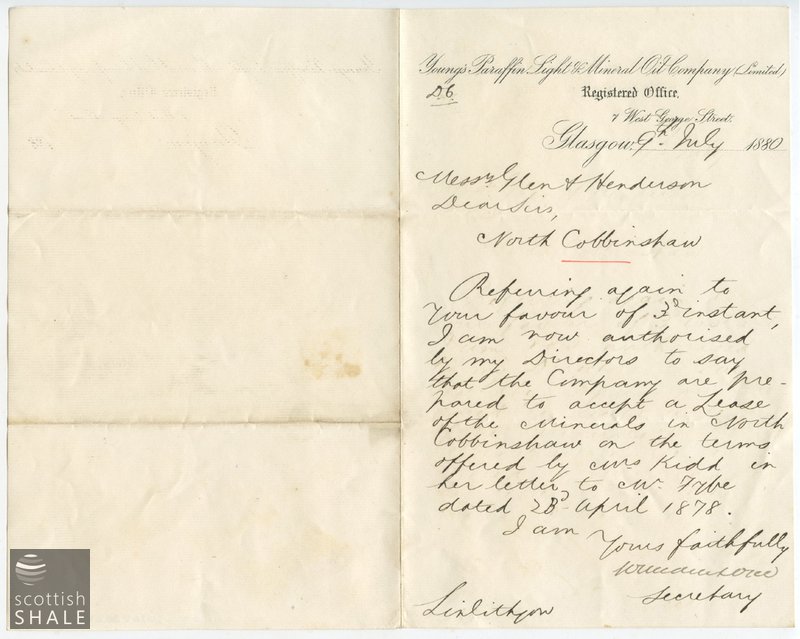 Young's Paraffin Light & Mineral Oil Company (Limited)
D6.
Registered Office,
7 West George Street.
Glasgow, 9th July 1880
Messrs Glen & Henderson
Dear Sirs,
North Cobbinshaw
Referring again to
your favour of 3d instant,
I am now authorised
by my Directors to say
that the Company are pre-
pared to accept a Lease
of the Minerals in North
Cobbinshaw on the terms
offered by Mrs Kidd in
her letter to Mr Fyfe
dated 23d April 1878.
I am
Yours faithfully
Secretary
Linlithgow
scottish
SHALE